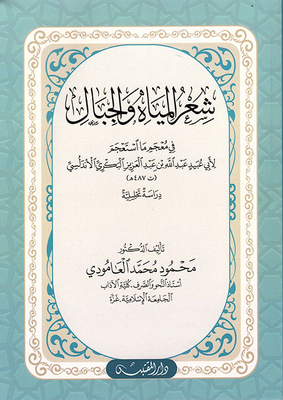 شِعْرُ المِيَاهِ وَالجِبَالِ
فِي مُعْجَمِ مَا اسْتَعْجَمَ
لأَبِي عُبَيْدٍ عَبْدِ اللّٰهِ بْنِ عَبْدِ العَزِيزِ البَكْرِيِّ الأَنْدَلُسِيِّ
(ت ٤٨٧هـ)
دِرَاسَةٌ تَحْلِيلِيَّةٌ
تَأْلِيفُ الدُّكْتُور
مَحْمُود مُحَمَّد العَامُودِي
أستاذ النحو والصرف - كلية الآداب
الجامعة الإسلامية - غزة
دار المقتبس